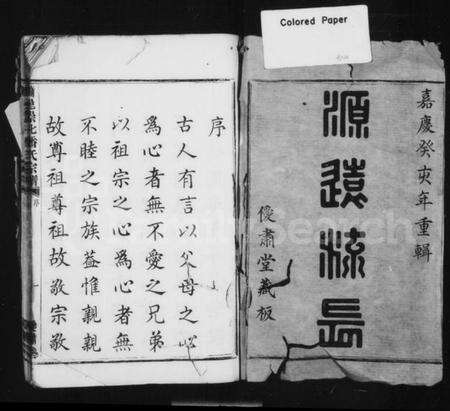 Colored Paper
嘉慶癸亥年重輯
源遠流長
肅堂藏板
序
古人有言以父母之心
為心者無不愛之兄弟
以祖宗之心為心者無
不睦之宗族葢惟親親
故尊祖尊祖故敬宗敬